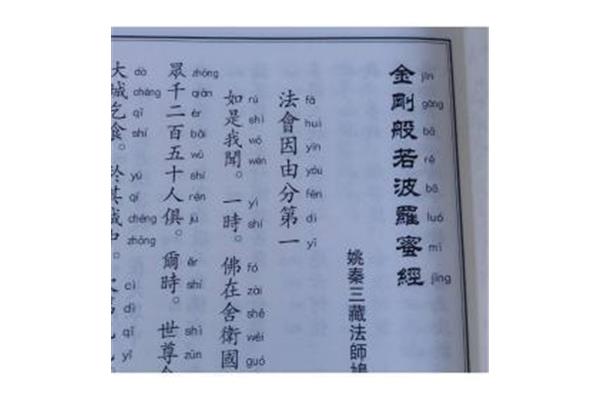 金剛般若波羅蜜經
jīn gāng bō rě bō luó mì jīng
姚秦三藏法師鳩
法會因由分第一
fǎ huì yīn yóu fēn dì yī
如是我聞。一時。佛在舍衛國
rú shì wǒ wén yì shí fó zài shě wèi guó
眾千二百五十人俱。爾時。世尊
zhòng qiān èr bǎi wǔ shí rén jù ěr shí shì zūn
大城乞食。於其城中。
dà chéng qǐ shí yú qí chéng zhōng cì dì qǐ yǐ